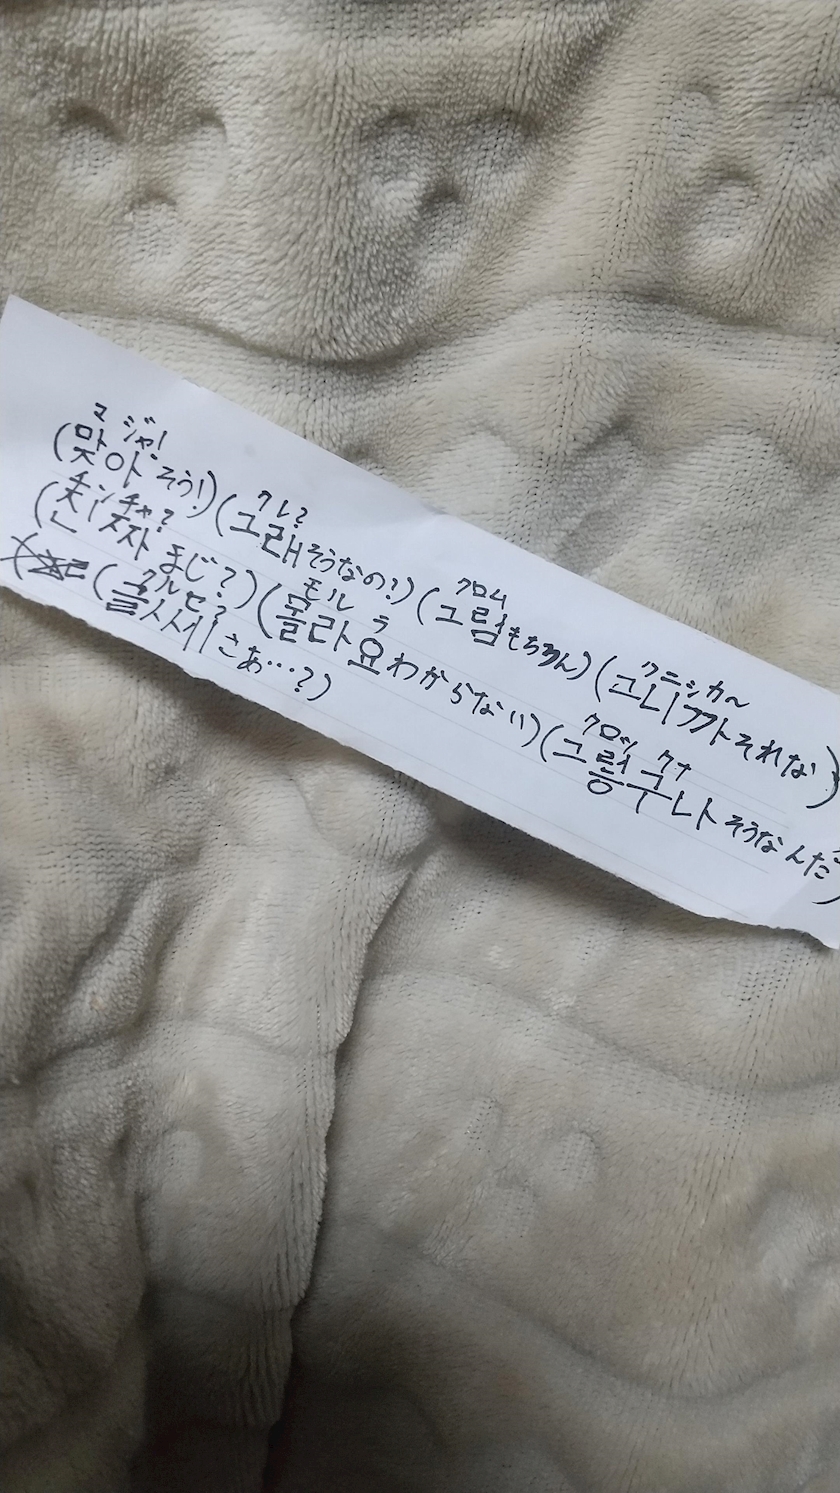 マジャ! クレ? クロム クニシカ〜
(맞아 そう!) (그래 そうなの?) (그럼 もちろん) (그니까 それな)
チンチャ? モルラ クロックナ
(진짜 まじ?) (몰라요 わからない) (그렁구나 そうなんだ)
クルセ?
(글쎄 さあ…?)